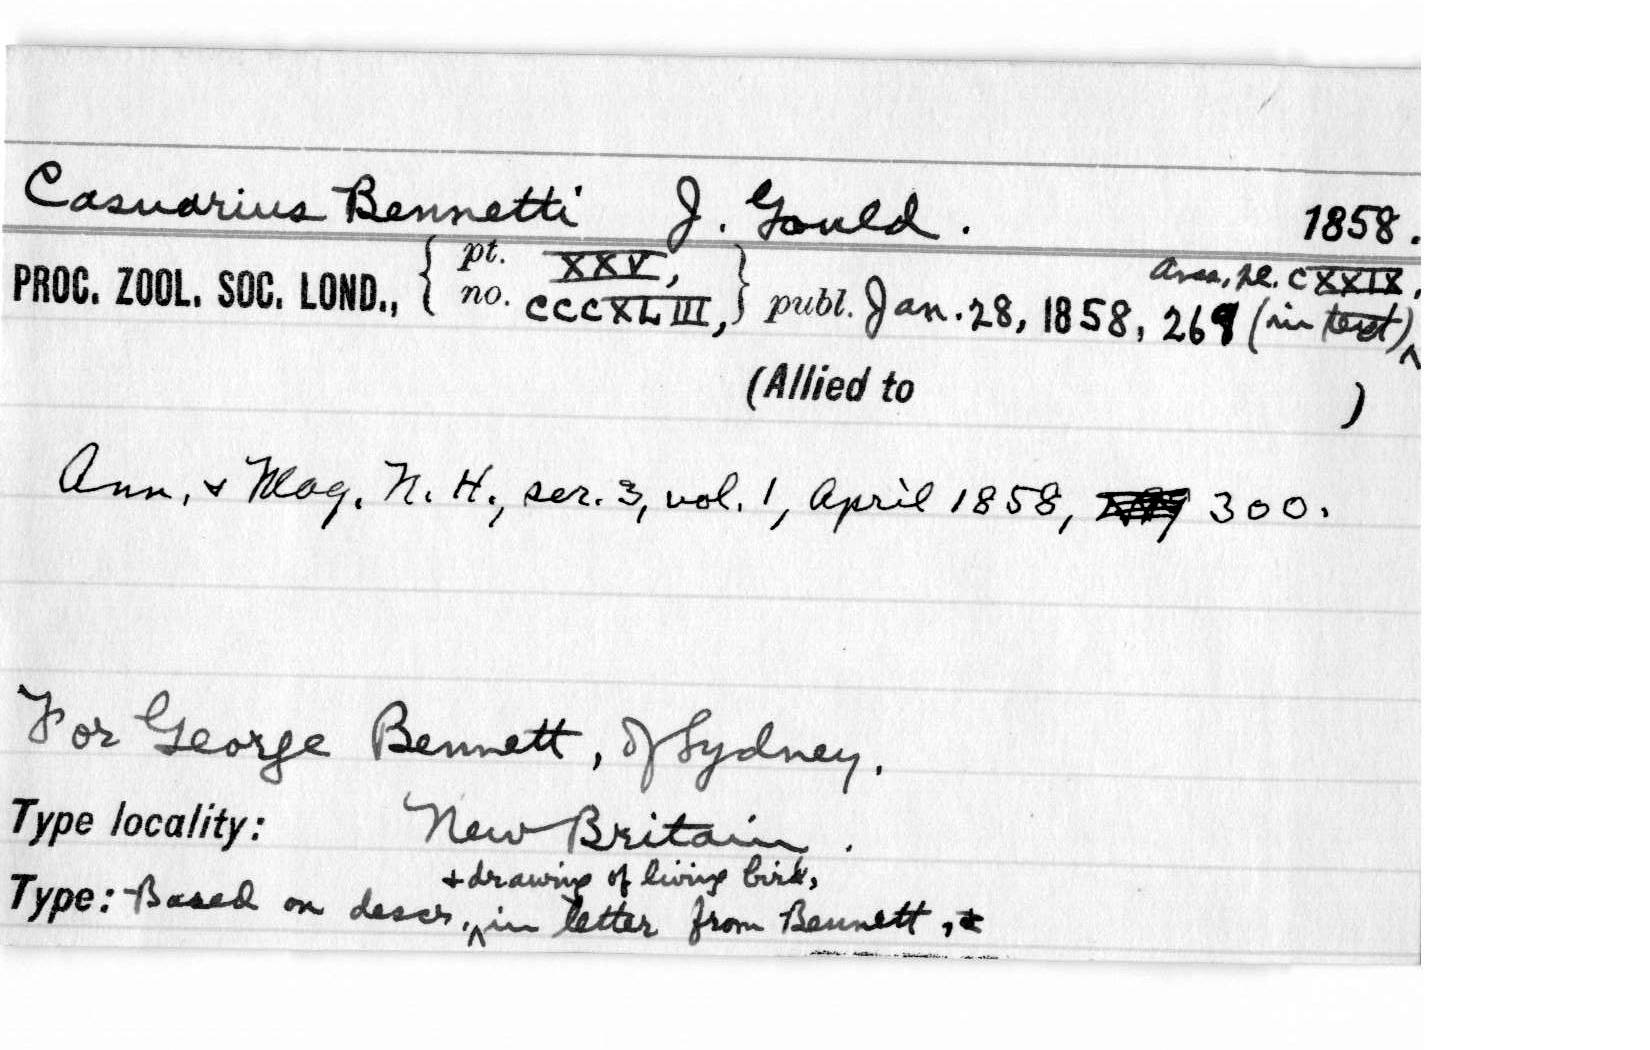 Casuarius Bennetti J. Gould. 1858.
PROC. ZOOL. SOC. LOND., { pt. XXV, no. CCCXLIII, } publ. Jan. 28, 1858, 269 (in text) ^ Aves, pl. CXXIX,
(Allied to )
Ann. & Mag. N. H., ser. 3, vol. 1, April 1858, 300.
For George Bennett, of Sydney.
Type locality: New Britain.
+ drawing of living bird,
Type: Based on descr. ^ in letter from Bennett,